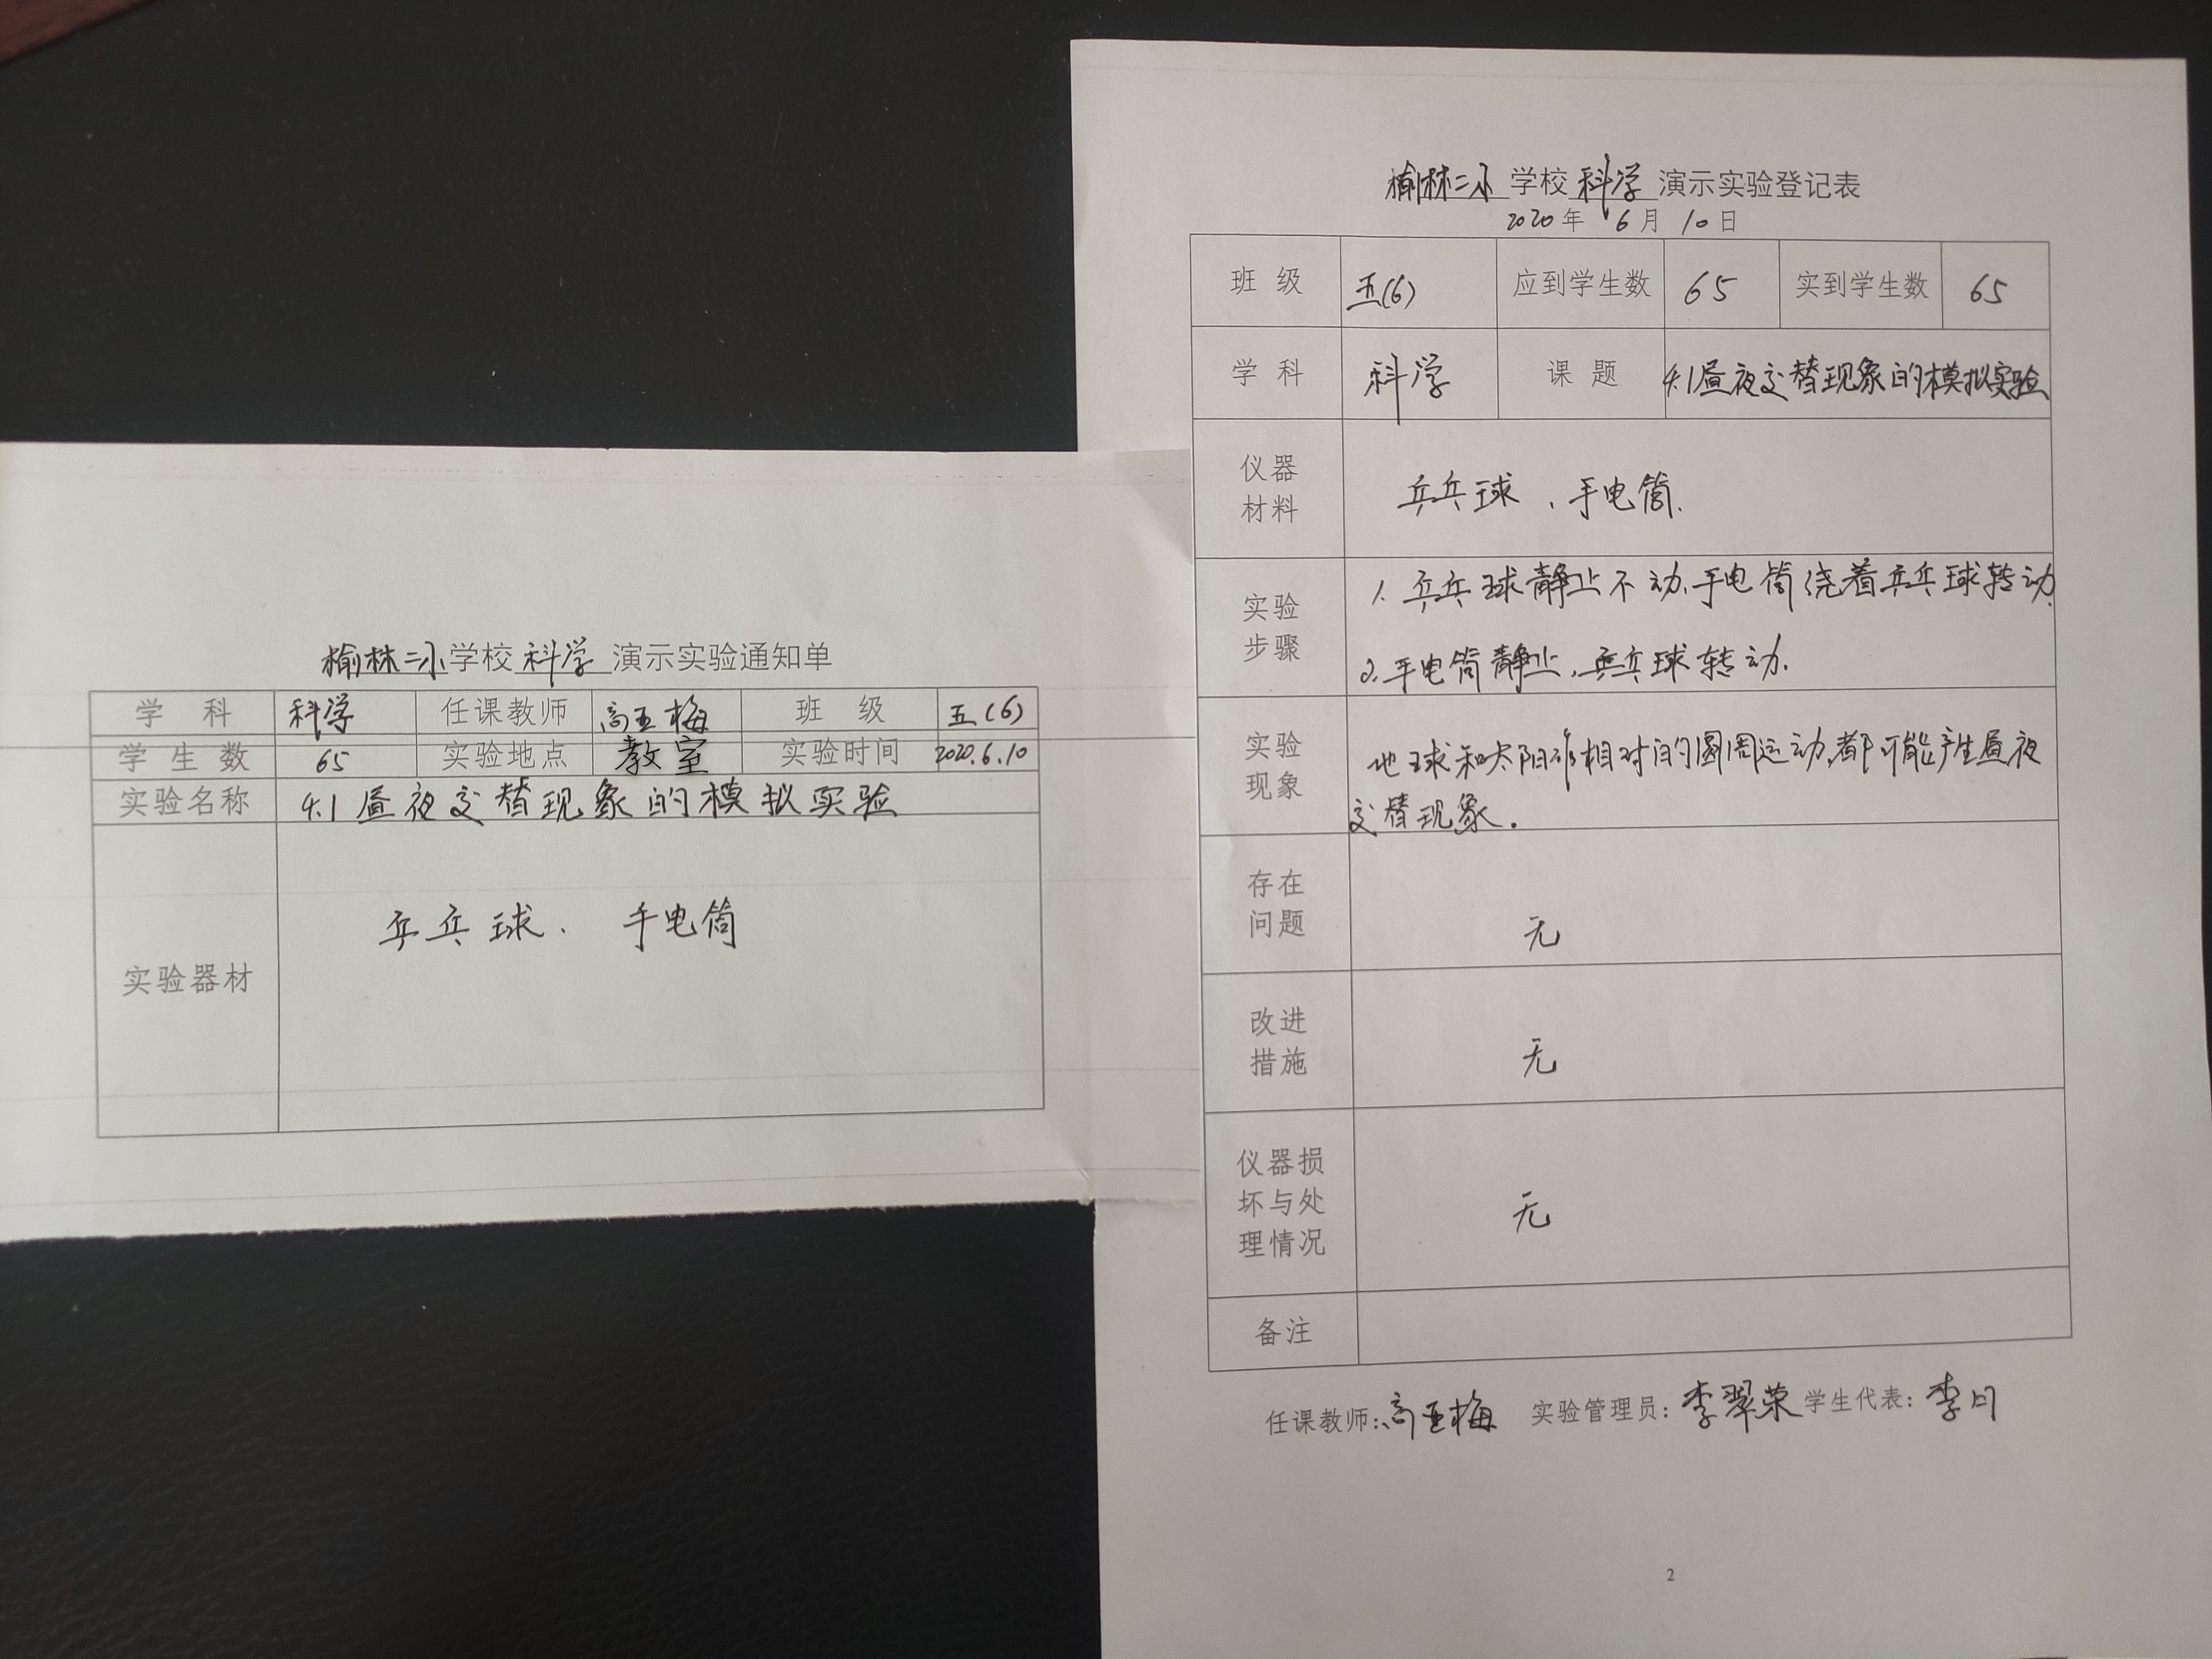 榆林二小学校科学演示实验通知单
学科 科学 任课教师 高亚梅 班级 五(6)
学生数 65 实验地点 教室 实验时间 2020.6.10
实验名称 4.1昼夜交替现象的模拟实验
实验器材 乒乓球、手电筒
榆林二小学校科学演示实验登记表
2020年6月10日
班级 五(6) 应到学生数 65 实到学生数 65
学科 科学 课题 4.1昼夜交替现象的模拟实验
仪器
材料
乒乓球、手电筒.
实验
步骤
1.乒乓球静止不动,手电筒绕着乒乓球转动.
2.手电筒静止,乒乓球转动.
实验
现象
地球和太阳作相对的圆周运动,都可能产生昼夜
交替现象.
存在
问题
无
改进
措施
无
仪器损
坏与处
理情况
无
备注
任课教师:高亚梅 实验管理员:李翠荣 学生代表:李
2